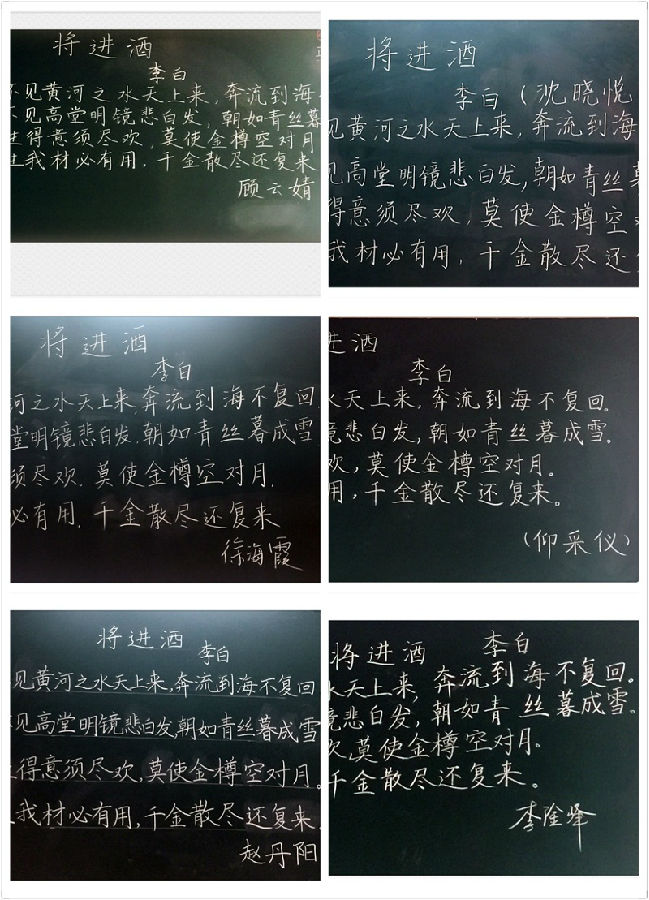 将进酒
李白
不见黄河之水天上来，奔流到海
不见高堂明镜悲白发，朝如青丝暮
生得意须尽欢，莫使金樽空对月
生我材必有用，千金散尽还复来
顾云婧
将进酒
李白（沈晓悦
见黄河之水天上来，奔流到海
见高堂明镜悲白发，朝如青丝暮
得意须尽欢，莫使金樽空
我材必有用，千金散尽还
将进酒
李白
河之水天上来，奔流到海不复回，
堂明镜悲白发，朝如青丝暮成雪
须尽欢，莫使金樽空对月，
必有用，千金散尽还复来
徐海霞
进酒
李白
水天上来，奔流到海不复回。
悲白发，朝如青丝暮成雪。
欢，莫使金樽空对月。
用，千金散尽还复来。
（仰采仪）
将进酒
李白
见黄河之水天上来，奔流到海不复回
见高堂明镜悲白发，朝如青丝暮成雪
得意须尽欢，莫使金樽空对月。
我材必有用，千金散尽还复来
赵丹阳
将进酒
李白
天上来，奔流到海不复回。
镜悲白发，朝如青丝暮成雪。
欢，莫使金樽空对月。
千金散尽还复来。